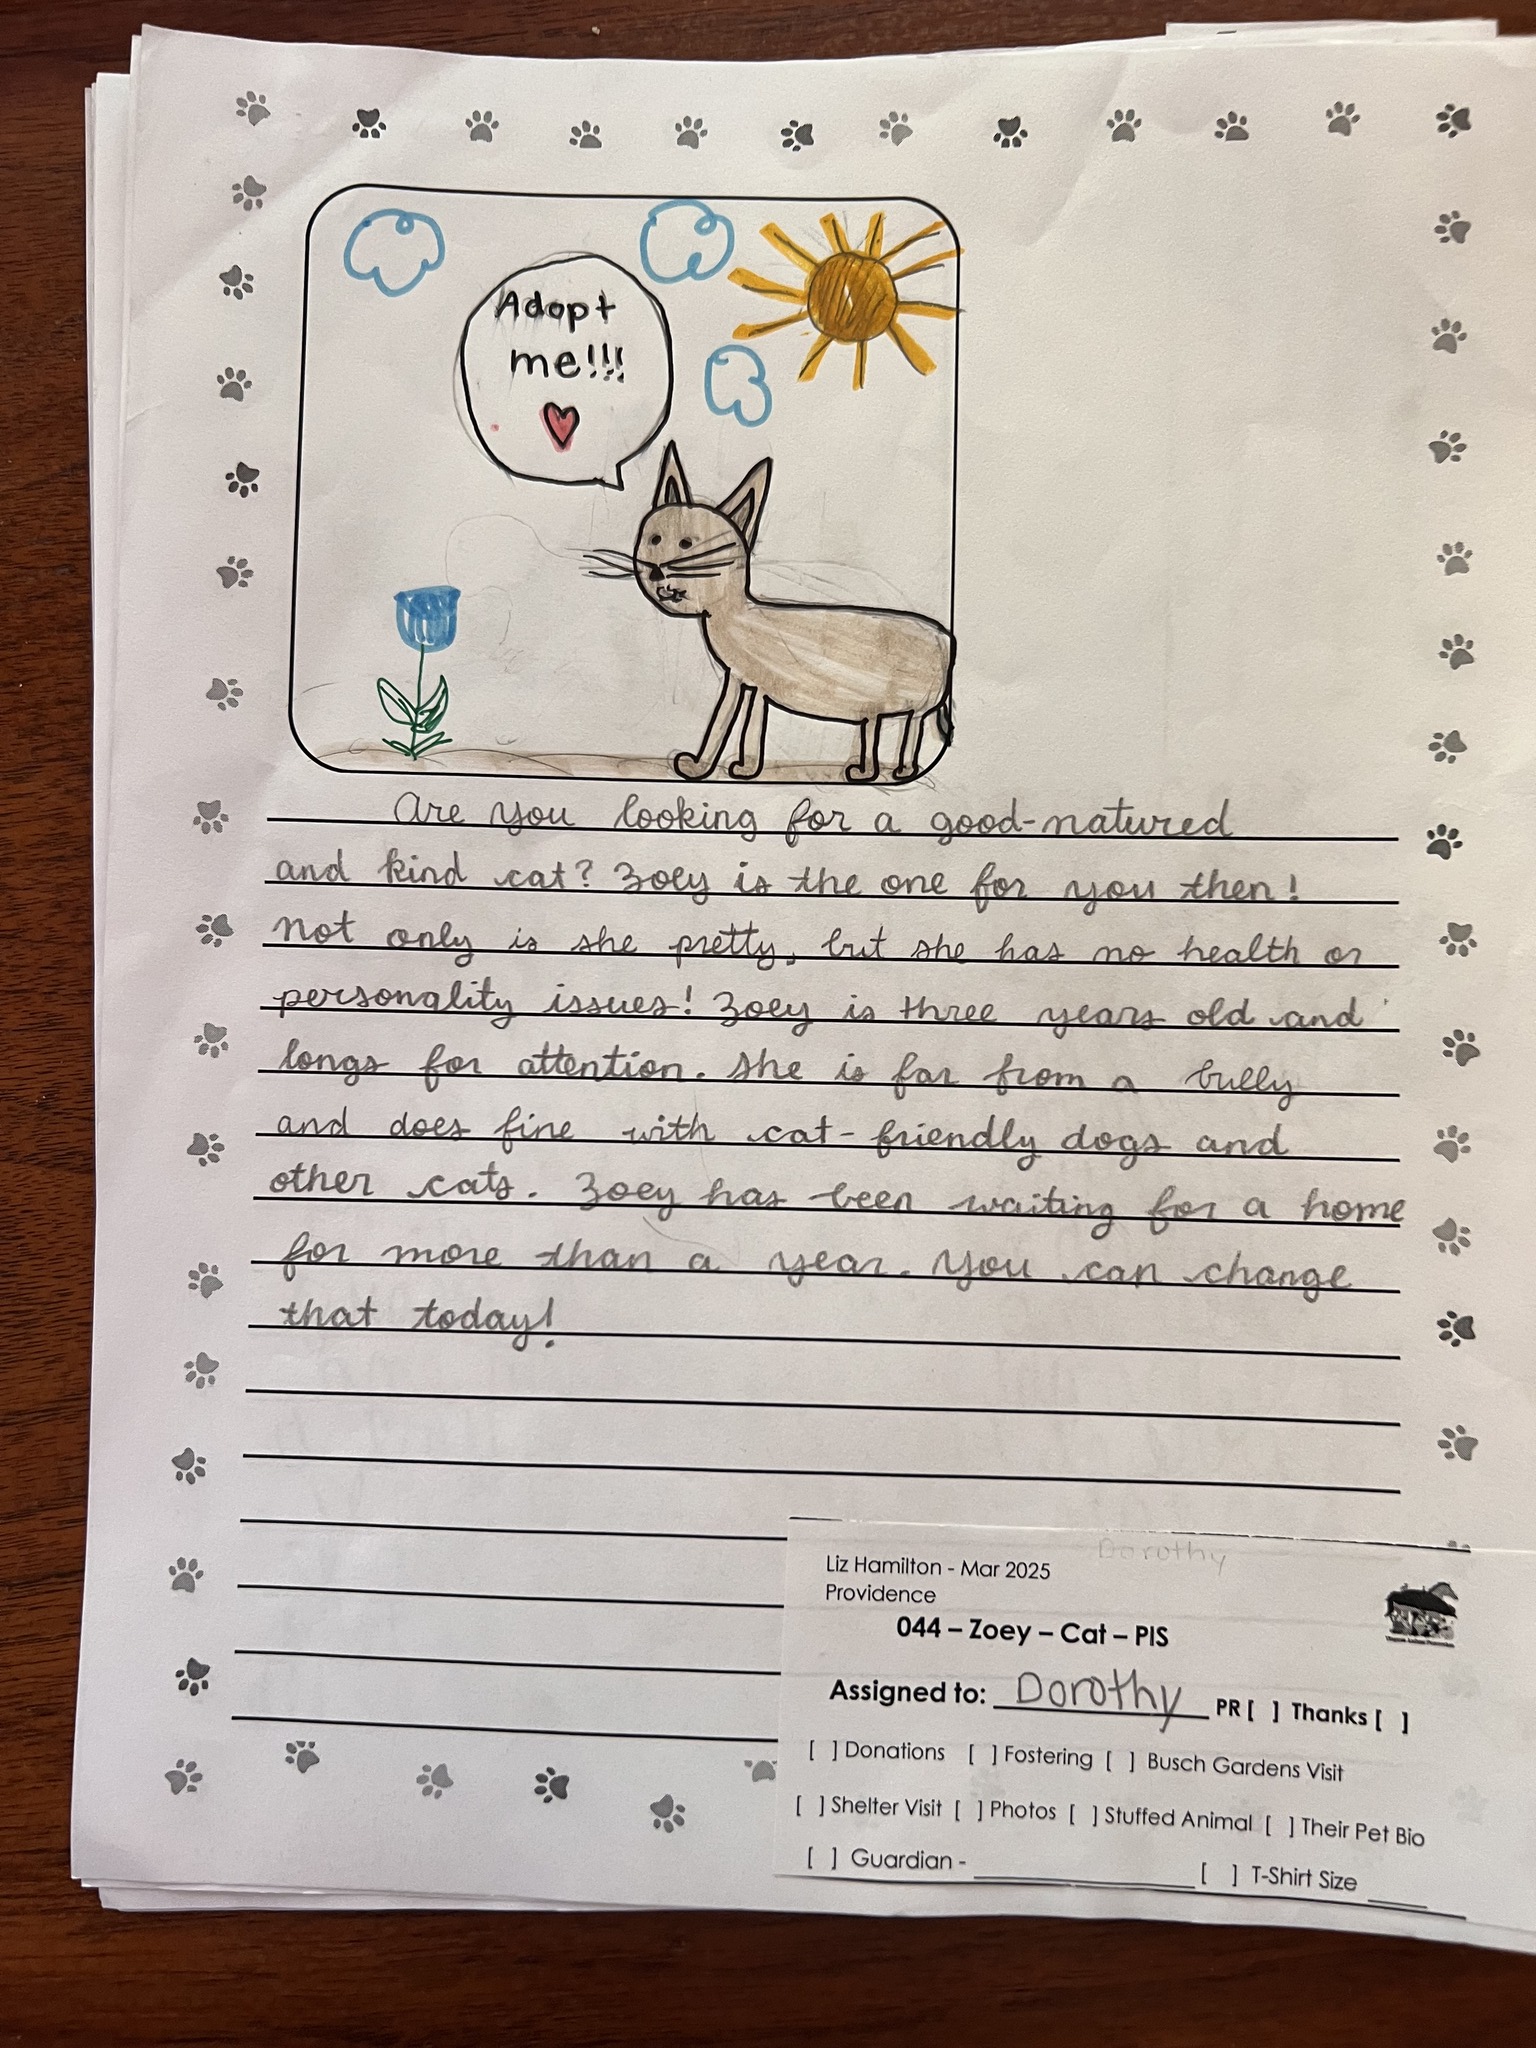 Adopt
me!!!
Are you looking for a good-natured
and kind cat? Zoey is the one for you then!
Not only is she pretty, but she has no health or
personality issues! Zoey is three years old and
longs for attention. She is far from a bully
and does fine with cat-friendly dogs and
other cats. Zoey has been waiting for a home
for more than a year. You can change
that today!
Dorothy
Liz Hamilton - Mar 2025
Providence
044 – Zoey – Cat – PIS
Assigned to: Dorothy PR [ ] Thanks [ ]
[ ] Donations [ ] Fostering [ ] Busch Gardens Visit
[ ] Shelter Visit [ ] Photos [ ] Stuffed Animal [ ] Their Pet Bio
[ ] Guardian - ____________ [ ] T-Shirt Size ____